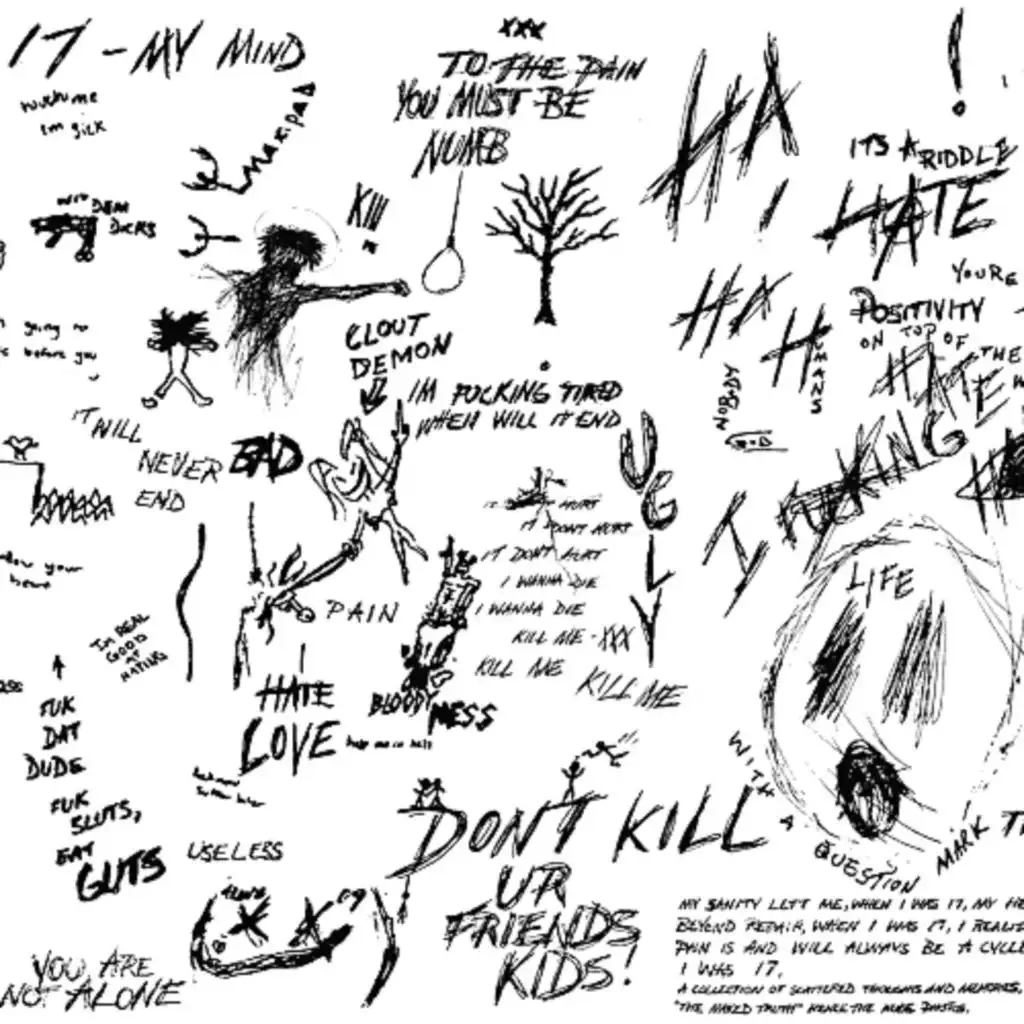 17 - MY MIND
I'm sick
XXX
TO THE PAIN
YOU MUST BE
NUMB
HA
!
ITS A RIDDLE
HATE
YOURE
POSITIVITY
ON TOP OF
THE
HATE
HA
HA
HUMANS
NOBODY
I FUCKING
KILL
DEM
DICKS
CLOUT
DEMON
IM FUCKING TIRED
WHEN WILL IT END
going to
before you
IT WILL
NEVER
END
BAD
UGLY
HURT
IT DONT HURT
IT DONT HURT
I WANNA DIE
I WANNA DIE
KILL ME - XXX
KILL ME
KILL ME
your
heart
PAIN
IM REAL
GOOD
AT
HATING
HATE
LOVE
help me in hell
BLOODY
MESS
LIFE
FUK
DAT
DUDE
FUK
SLUTS,
EAT
GUTS
USELESS
DONT KILL
UR
FRIENDS
KIDS!
WITH
A
QUESTION
MARK
YOU ARE
NOT ALONE
MY SANITY LEFT ME, WHEN I WAS 17, MY
BEYOND REPAIR, WHEN I WAS 17, I
PAIN IS AND WILL ALWAYS BE A
I WAS 17,
A COLLECTION OF SCATTERED THOUGHTS AND MEMORIES,
"THE NAKED TRUTH" HENCE THE NUDE PHOTOS,